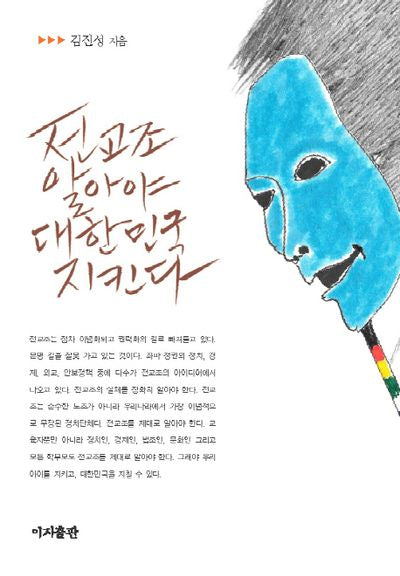 ▶▶▶ 김진성 지음
전교조
알아야
대한민국
지킨다
전교조는 점차 이념화되고 권력화의 길로 빠져들고 있다.
분명 길을 잘못 가고 있는 것이다. 좌파 정권의 정치, 경
제, 외교, 안보정책 중에 다수가 전교조의 아이디어에서
나오고 있다. 전교조의 실체를 정확히 알아야 한다. 전교
조는 순수한 노조가 아니라 우리나라에서 가장 이념적으
로 무장된 정치단체다. 전교조를 제대로 알아야 한다. 교
육자뿐만 아니라 정치인, 경제인, 법조인, 문화인 그리고
모든 학부모도 전교조를 제대로 알아야 한다. 그래야 우리
아이를 지키고, 대한민국을 지킬 수 있다.
미지출판